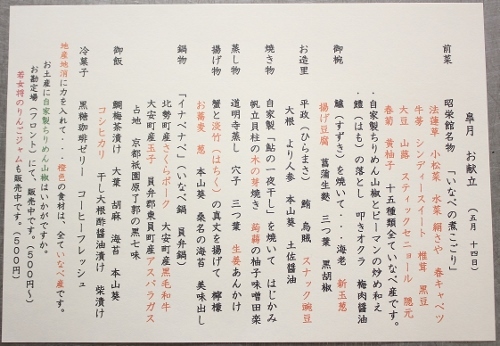 皐月 お献立 (五月 十四日)
前菜 昭栄館名物 「いなべの煮こごり」
法蓮草 小松菜 水菜 絹さや 春キャベツ
牛蒡 シンディスイート 椎茸 黒豆
大豆 山蕗 スティックセニョール 隠元
春菊 黄柚子 十五種類全ていなべ産です。
・自家製ちりめん山椒とピーマンの炒め和え
・鱧(はも)の落とし 叩きオクラ 梅肉醤油
御椀 鱸(すずき)を焼いて・・・海老 新玉葱
揚げ豆腐 菖蒲生麩 三つ葉 黒胡椒
お造里 平政(ひらまさ) 鮪 烏賊 スナック豌豆
大根 より人参 本山葵 土佐醤油
焼き物 自家製「鮎の一夜干し」を焼いて はじかみ
帆立貝柱の木の芽焼き 蒟蒻の柚子味噌田楽
蒸し物 道明寺蒸し 穴子 三つ葉 生姜あんかけ
揚げ物 蟹と淡竹(はちく)の真丈を揚げて 檸檬
お蕎麦 葱 本山葵 桑名の海苔 美味出し
鍋物 「イナベナベ」(いなべ鍋 員弁鍋)
北勢町産さくらポーク 大安町産黒毛和牛
大安町産玉子 員弁郡東員町産アスパラガス
占地 京都祇園原了郭の黒七味
御飯 鯛梅茶漬け 大葉 胡麻 海苔 本山葵
コシヒカリ 干し大根酢醤油漬け 柴漬け
冷菓子 黒糖珈琲ゼリー コーヒーフレッシュ
地産地消に力を入れて・・・橙色の食材は、全ていなべ産です。
お土産に自家製ちりめん山椒はいかがですか。
お勘定場(フロント)にて、販売中です。(500円〜)
若女将のりんごジャムも販売中です。(500円)